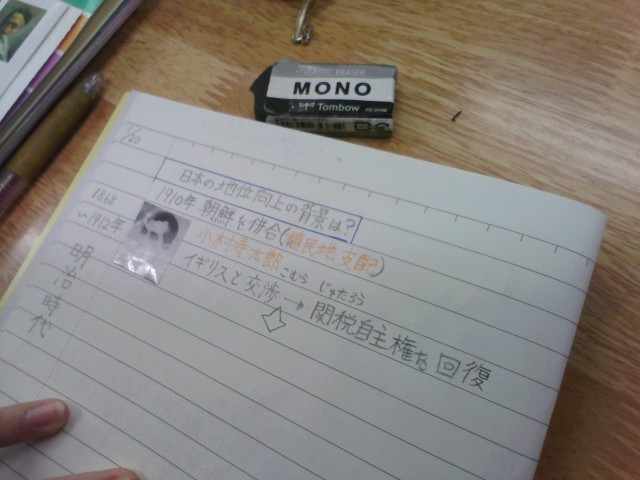 CLASSIC ERASER
MONO
Tombow
1/20
日本の地位向上の背景は?
1868
~1912年
明治時代
1910年 朝鮮を併合(植民地支配)
小村寿太郎
こむら じゅたろう
イギリスと交渉→関税自主権を回復